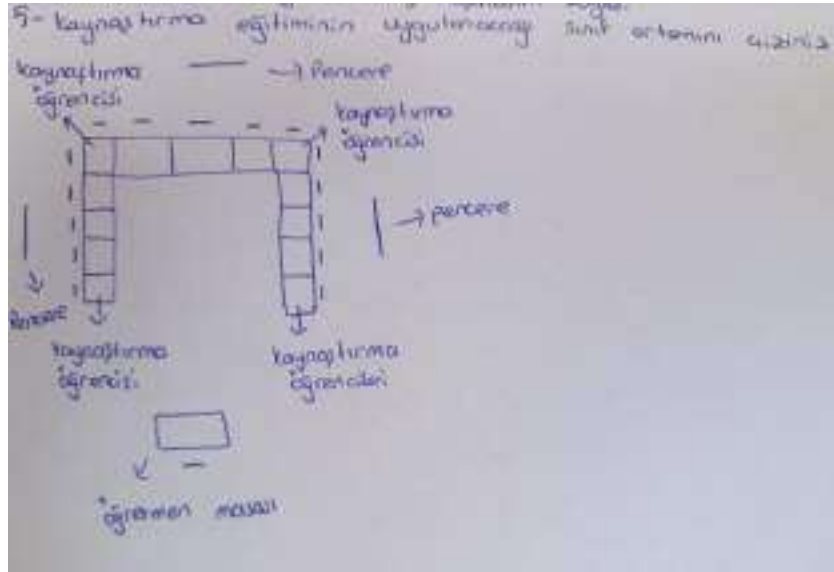 5- kaynaştırma eğitiminin uygulanacağı sınıf ortamını çiziniz
kaynaştırma öğrencisi
→ Pencere
kaynaştırma öğrencisi
→ pencere
Pencere
kaynaştırma öğrencisi
kaynaştırma öğrencileri
öğretmen masası